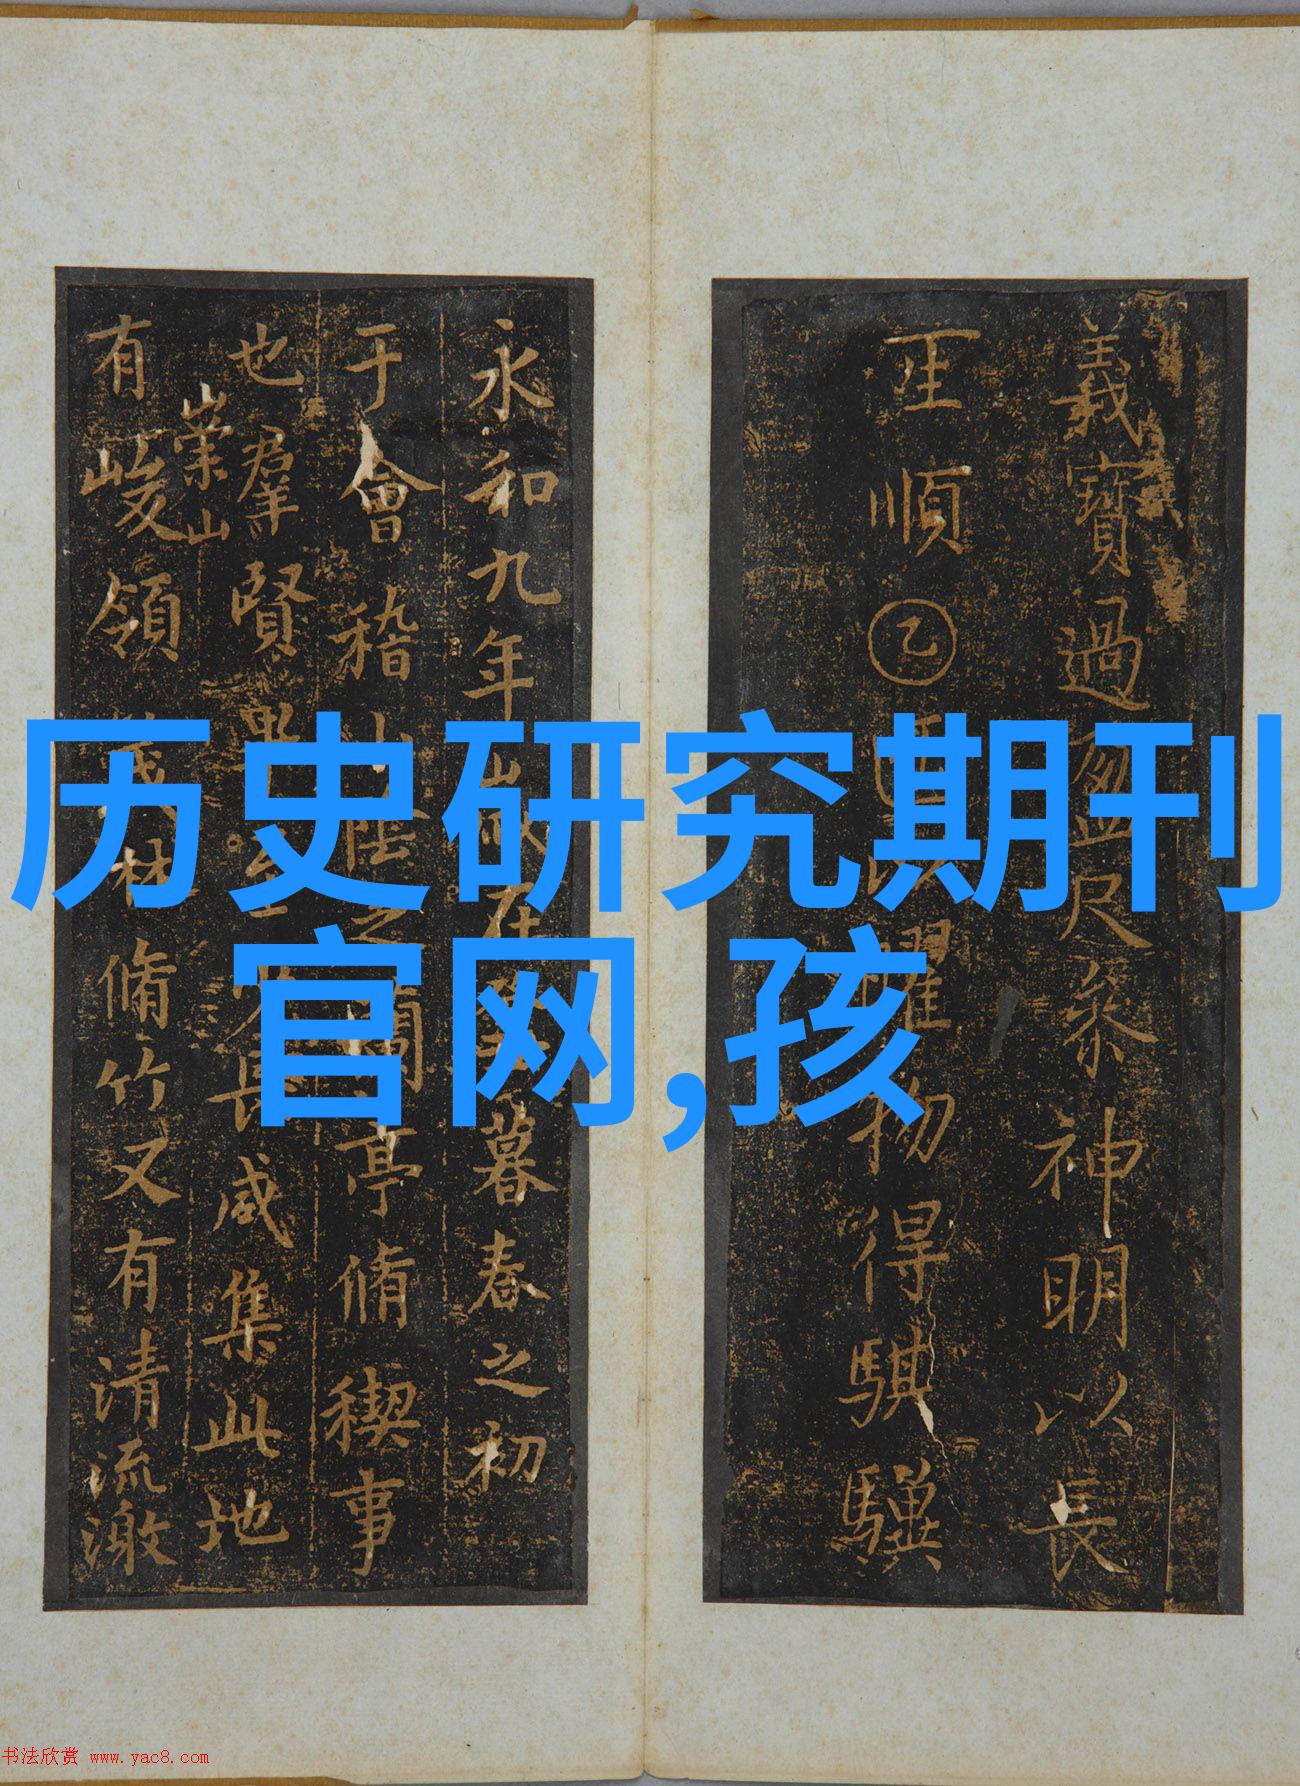 義寶過盈尺參神明以長
王順㇠
得騏驥
永和九年歲在暮春之初
于會稽山陰之蘭亭脩禊事
也羣賢畢至少長咸集此地
崇山
有峻領茂林脩竹又有清流激
历史研究期刊
官网,孩
书法欣赏 www.yac8.com